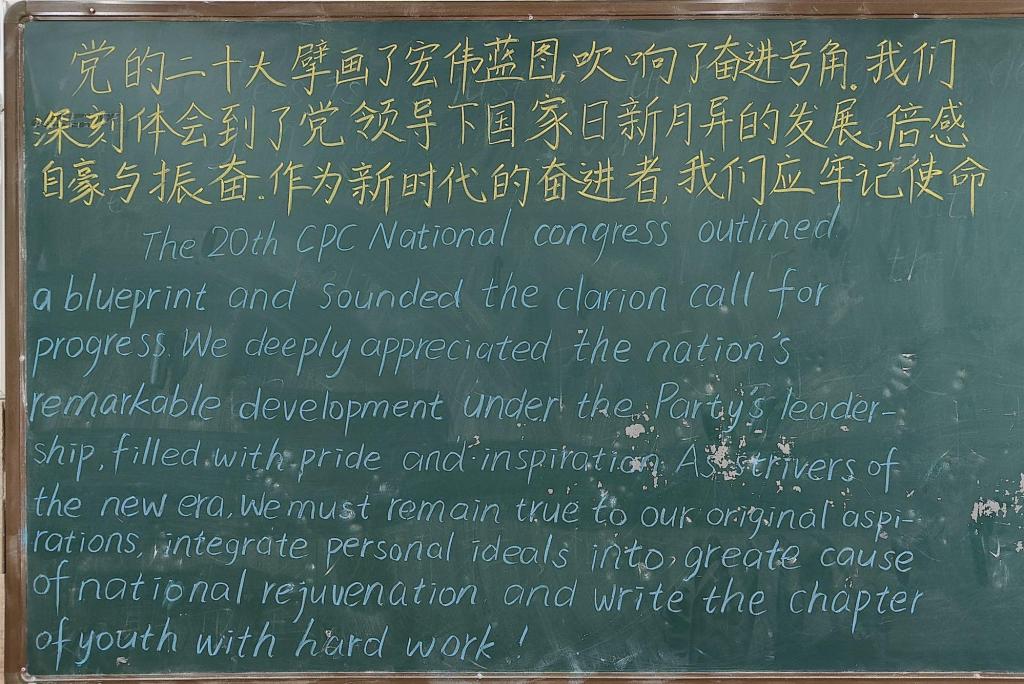 党的二十大擘画了宏伟蓝图,吹响了奋进号角。我们
深刻体会到了党领导下国家日新月异的发展,倍感
自豪与振奋。作为新时代的奋进者,我们应牢记使命
The 20th CPC National congress outlined
a blueprint and sounded the clarion call for
progress. We deeply appreciated the nation's
remarkable development under the Party's leader-
ship, filled with pride and inspiration. As strivers of
the new era, we must remain true to our original aspi-
rations, integrate personal ideals into, greate cause
of national rejuvenation and write the chapter
of youth with hard work!